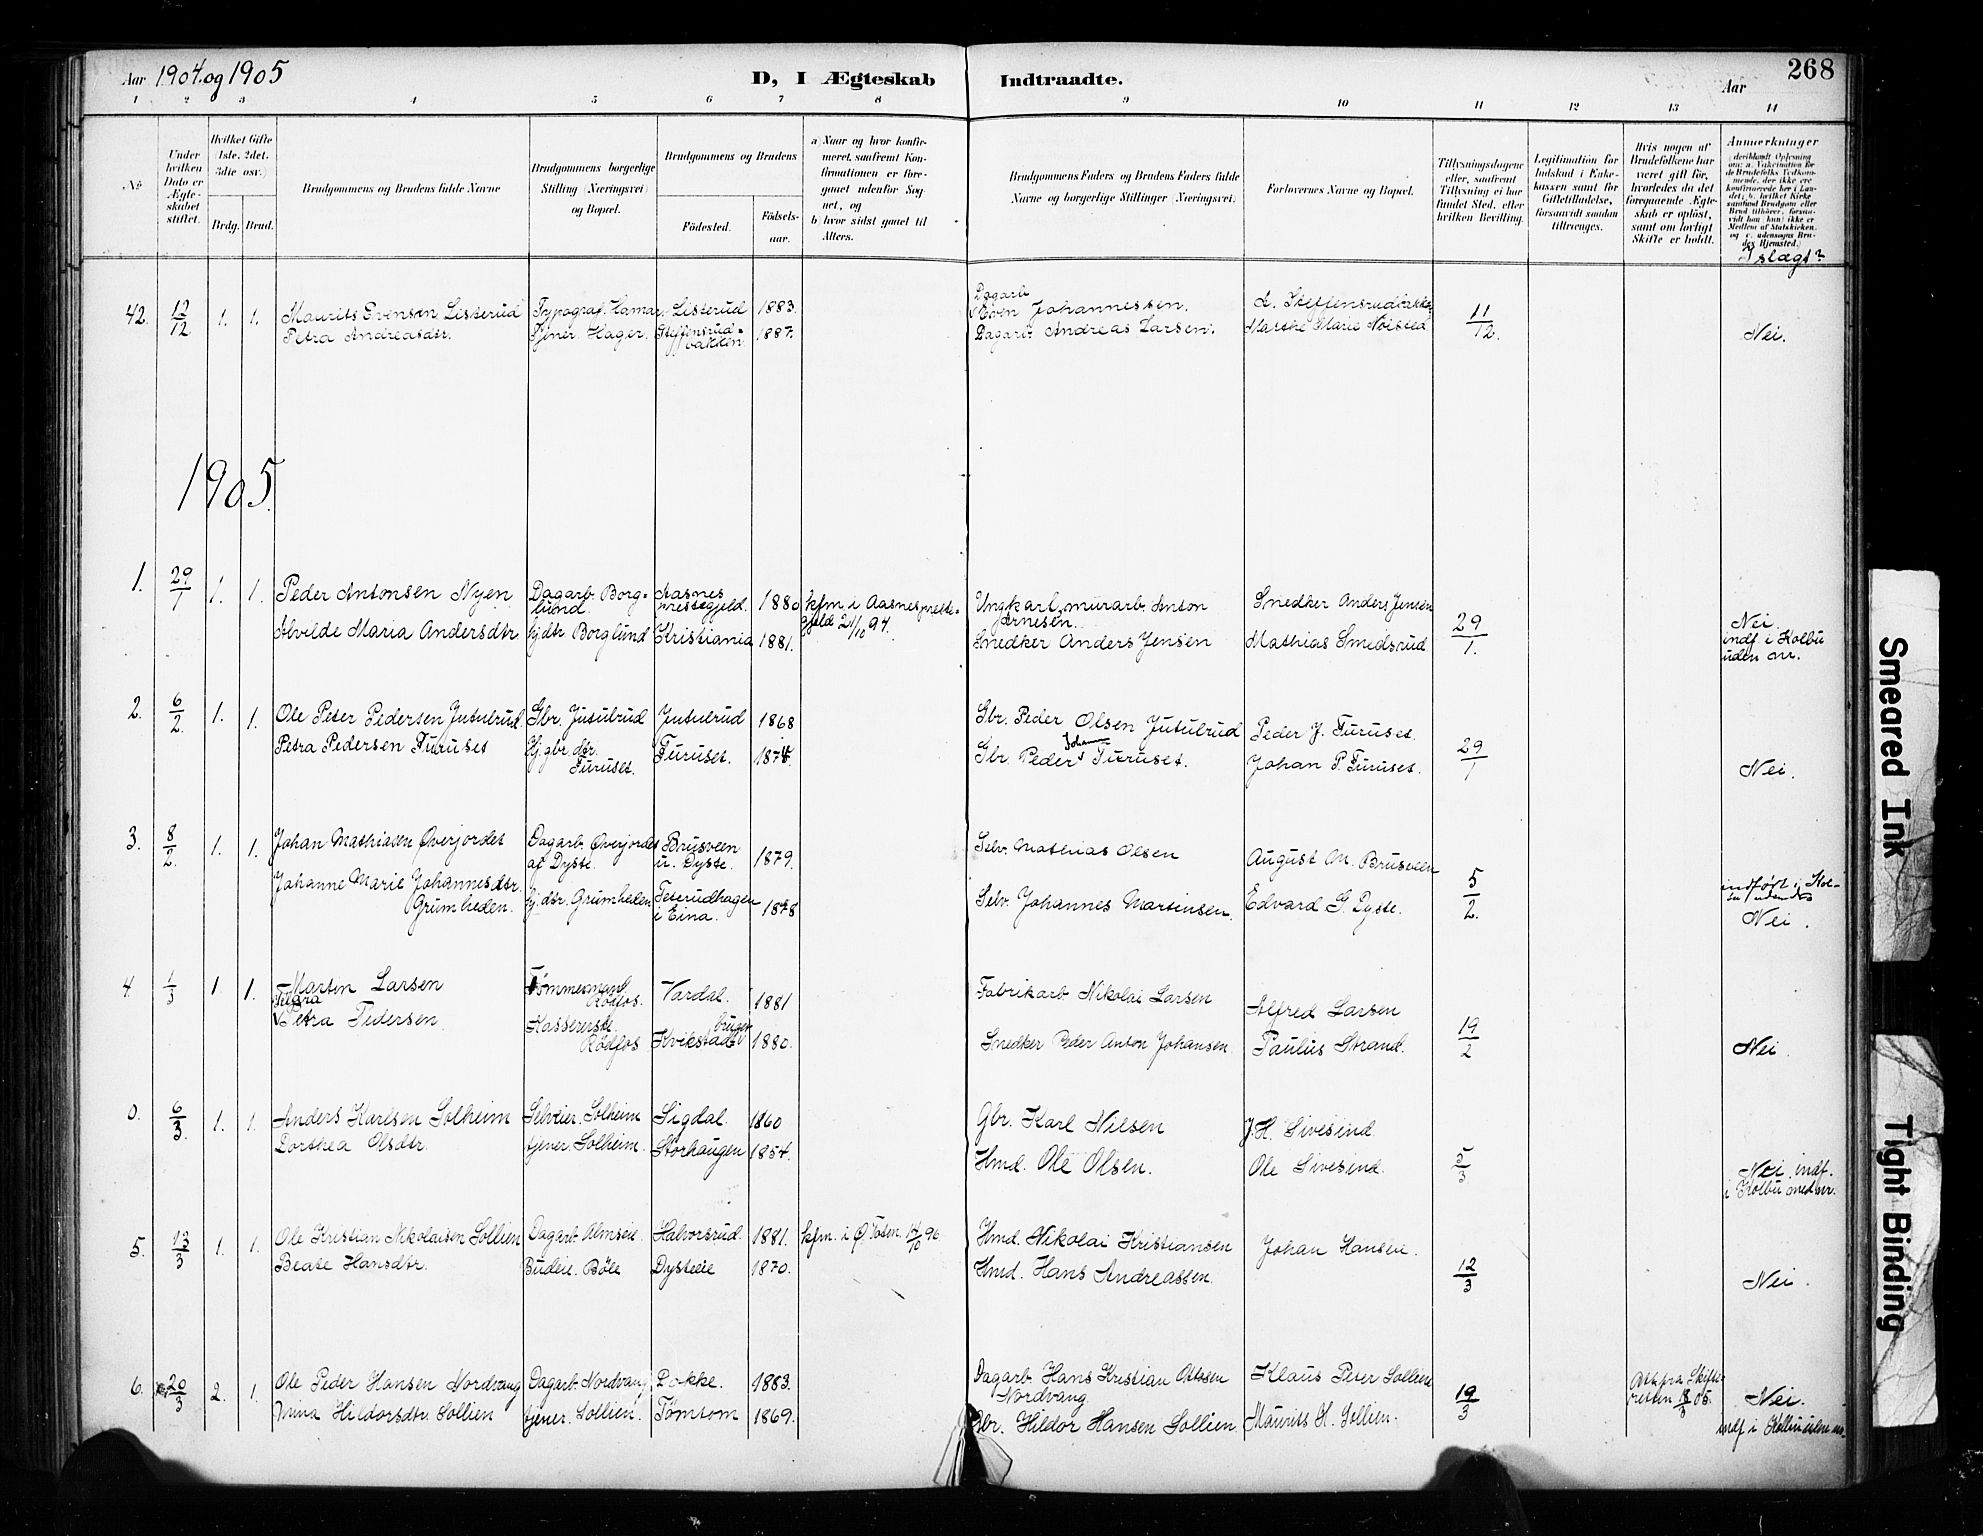 Aar 1904 og 1905
D, I Ægteskab Indtraadte.
Aar
268
1 2 3 4 5 6 7 8 9 10 11 12 13 14
No
Under hvilken Dato er Ægteskabet stiftet.
Hvilket Gifte (1ste, 2det, 3die osv.)
Brdg. Brud.
Brudgommens og Brudens fulde Navne
Brudgommens borgerlige Stilling (Næringsvei) og Bopæl.
Brudgommens og Brudens
Födested.
Födsels-aar.
a) Naar og hvor konfirmeret, saafremt Konfirmationen er foregaaet udenfor Sognet, og
b) hvor sidst gaaet til Alters.
Brudgommens Faders og Brudens Faders fulde Navne og borgerlige Stillinger (Næringsvei)
Forlovernes Navne og Bopæl.
Tillysningsdagene eller, saafremt Tillysning ei har fundet Sted, efter hvilken Bevilling.
Legitimation for Indskud i Enkekassen samt for Giftetilladelse, forsaavidt saadan tiltrænges.
Hvis nogen af Brudefolkene har været gift för, hvorledes da det foregaaende Ægteskab er oplöst, samt om lovligt Skifte er holdt.
Anmerkninger
I slægt?
42. 12/12 1. 1. Maurits Evensen Listerud Typograf. Hamar. Listerud 1883. Dagarb. Even Johannessen. A. Steffensrudbakken 11/12.
Petra Andreasdtr. Tjener. Hager. Steffensrud-bakken 1887. Dagarb. Andreas Larsen. Marthe Marie Nöisted Nei.
1905.
1. 29/1 1. 1. Peder Antonsen Nyen Dagarb. Borg-lund. Aasnes prestegjeld. 1880 kfm. i Aasnes preste-gjeld 2/10 94. Ungkarl, murarb. Anton Arnesen. Snedker Anders Jensen 29/1.
Alvilde Maria Andersdtr hj. dtr Borglund Kristiania 1881. Snedker Anders Jensen Mathias Smedsrud Nei. indf. i Kolbu uden nr.
2. 6/2. 1. 1. Ole Peter Pedersen Jutulrud. Gbr. Jutulrud Jutulrud 1868 Gbr. Peder Olsen Jutulrud Peder J. Furuset. 29/1
Petra Pedersen Furuset Hj. gbr. dtr. Furuset. Furuset. 1874. Gbr. Peder Johan Furuset. Johan P. Furuset. Nei.
3. 8/2. 1. 1. Johan Mathiasen Overjordet Dagarb. Overjordet af Dyste. Brusveen u. Dyste. 1879. Selv. Mathias Olsen August M. Brusveen 5/2.
Johanne Marie Johannesdtr. Grumheden. hj. dtr. Grumheden Teterudhagen i Eina. 1878 Selv. Johannes Martinsen. Edvard G. Dyste. indført i Kolbu Nei.
4. 1/3 1. 1. Martin Larsen Tömmermand Rödfos. Vardal. 1881 Fabrikarb Nikolai Larsen Alfred Larsen 19/2
Petra Pedersen. Kassererske Rödfos Kvikstadbrugen 1880. Snedker Peder Anton Johansen. Paulus Strand. Nei.
0. 6/3. 1. 1. Anders Karlsen Solheim Selveier. Solheim Sigdal. 1860 Gbr. Karl Nilsen J. H. Sivesind. 5/3
Dorthea Olsdtr. tjener. Solheim. Storhaugen 1854. Hmd. Ole Olsen. Ole Sivesind. Nei. indf. i Kolbu med nr.
5. 13/3 1. 1. Ole Kristian Nikolaisen Sollien Dagarb. Almseie. Halvorsrud. 1881. kfm. i Ø. Toten. 14/10 96. Hmd. Nikolai Kristiansen Johan Hansen. 12/3
Beate Hansdtr. Budeie. Böle Dysteeie 1870. Hmd. Hans Andreassen. Nei.
6. 20/3 2. 1. Ole Peder Hansen Nordvang Dagarb. Nordvang Dokke. 1883. Dagarb. Hans Kristian Ottesen Nordvang Klaus Peter Sollien 19/3 Att. fra Skifteretten 18/3 05.
Hildorsdtr. Sollien tjener. Sollien. Tömtom 1869. Gbr. Hildor Hansen Sollien. Maurits H. Sollien. Nei. indf i Kolbu uden nr.
Smeared Ink
Tight Binding